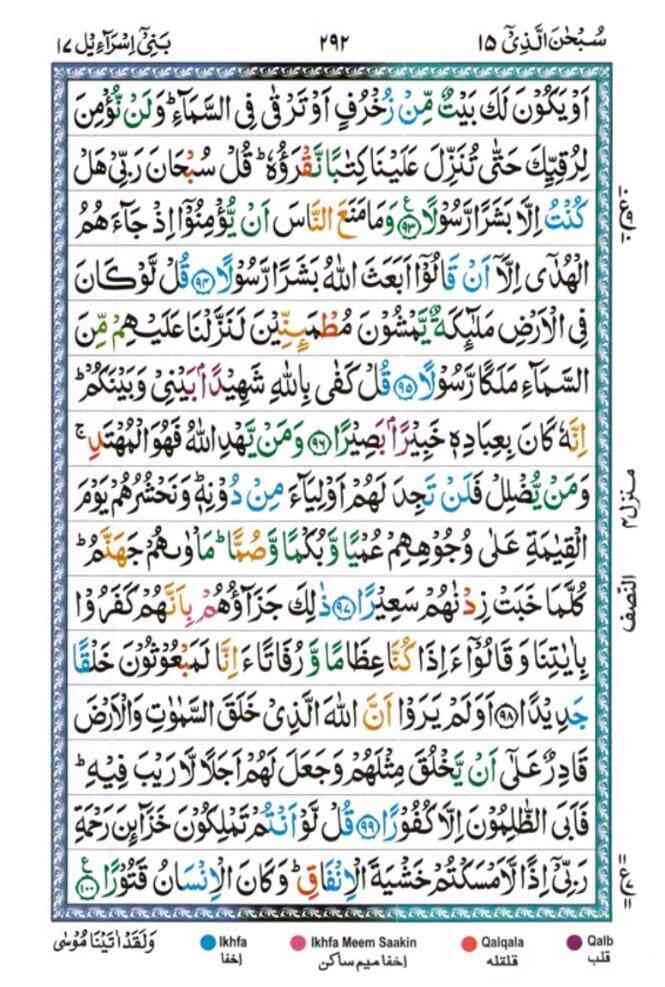 سُبْحٰنَ الَّذِیْۤ ۱۵
۲۹۲
بَنِیْۤ اِسْرَآءِیْل ۱۷
اَوْ یَكُوْنَ لَكَ بَیْتٌ مِّنْ زُخْرُفٍ اَوْ تَرْقٰى فِی السَّمَآءِ ؕ وَ لَنْ نُّؤْمِنَ
لِرُقِیِّكَ حَتّٰى تُنَزِّلَ عَلَیْنَا كِتٰبًا نَّقْرَؤُهٗ ؕ قُلْ سُبْحَانَ رَبِّیْ هَلْ
كُنْتُ اِلَّا بَشَرًا رَّسُوْلًا ﴿۹۳﴾ ع وَ مَا مَنَعَ النَّاسَ اَنْ یُّؤْمِنُوْۤا اِذْ جَآءَهُمُ
الْهُدٰۤى اِلَّاۤ اَنْ قَالُوْۤا اَبَعَثَ اللّٰهُ بَشَرًا رَّسُوْلًا ﴿۹۴﴾ قُلْ لَّوْ كَانَ
فِی الْاَرْضِ مَلٰٓىِٕكَةٌ یَّمْشُوْنَ مُطْمَىِٕنِّیْنَ لَنَزَّلْنَا عَلَیْهِمْ مِّنَ
السَّمَآءِ مَلَكًا رَّسُوْلًا ﴿۹۵﴾ قُلْ كَفٰى بِاللّٰهِ شَهِیْدًۢا بَیْنِیْ وَ بَیْنَكُمْ ؕ
اِنَّهٗ كَانَ بِعِبَادِهٖ خَبِیْرًۢا بَصِیْرًا ﴿۹۶﴾ وَ مَنْ یَّهْدِ اللّٰهُ فَهُوَ الْمُهْتَدِ ۚ
وَ مَنْ یُّضْلِلْ فَلَنْ تَجِدَ لَهُمْ اَوْلِیَآءَ مِنْ دُوْنِهٖ ؕ وَ نَحْشُرُهُمْ یَوْمَ
الْقِیٰمَةِ عَلٰى وُجُوْهِهِمْ عُمْیًا وَّ بُكْمًا وَّ صُمًّا ؕ مَاْوٰىهُمْ جَهَنَّمُ ؕ
كُلَّمَا خَبَتْ زِدْنٰهُمْ سَعِیْرًا ﴿۹۷﴾ ذٰلِكَ جَزَآؤُهُمْ بِاَنَّهُمْ كَفَرُوْا
بِاٰیٰتِنَا وَ قَالُوْۤا ءَاِذَا كُنَّا عِظَامًا وَّ رُفَاتًا ءَاِنَّا لَمَبْعُوْثُوْنَ خَلْقًا
جَدِیْدًا ﴿۹۸﴾ اَوَ لَمْ یَرَوْا اَنَّ اللّٰهَ الَّذِیْ خَلَقَ السَّمٰوٰتِ وَ الْاَرْضَ
قَادِرٌ عَلٰۤى اَنْ یَّخْلُقَ مِثْلَهُمْ وَ جَعَلَ لَهُمْ اَجَلًا لَّا رَیْبَ فِیْهِ ؕ
فَاَبَى الظّٰلِمُوْنَ اِلَّا كُفُوْرًا ﴿۹۹﴾ قُلْ لَّوْ اَنْتُمْ تَمْلِكُوْنَ خَزَآىِٕنَ رَحْمَةِ
رَبِّیْۤ اِذًا لَّاَمْسَكْتُمْ خَشْیَةَ الْاِنْفَاقِ ؕ وَ كَانَ الْاِنْسَانُ قَتُوْرًا ﴿۱۰۰﴾ ع
منزل ۴
النصف
وَ لَقَدْ اٰتَیْنَا مُوْسٰى
Ikhfa
اخفا
Ikhfa Meem Saakin
اخفا میم ساکن
Qalqala
قلقله
Qalb
قلب